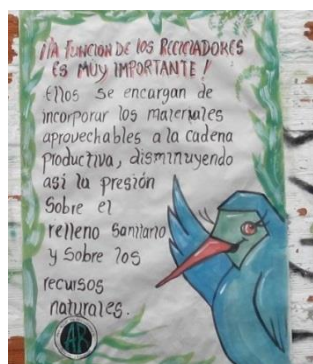 ¡LA FUNCION DE LOS RECICLADORES
ES MUY IMPORTANTE!
Ellos se encargan de
incorporar los materiales
aprovechables a la cadena
productiva, disminuyendo
así la presión
Sobre el
relleno Sanitario
y Sobre los
recursos
naturales.